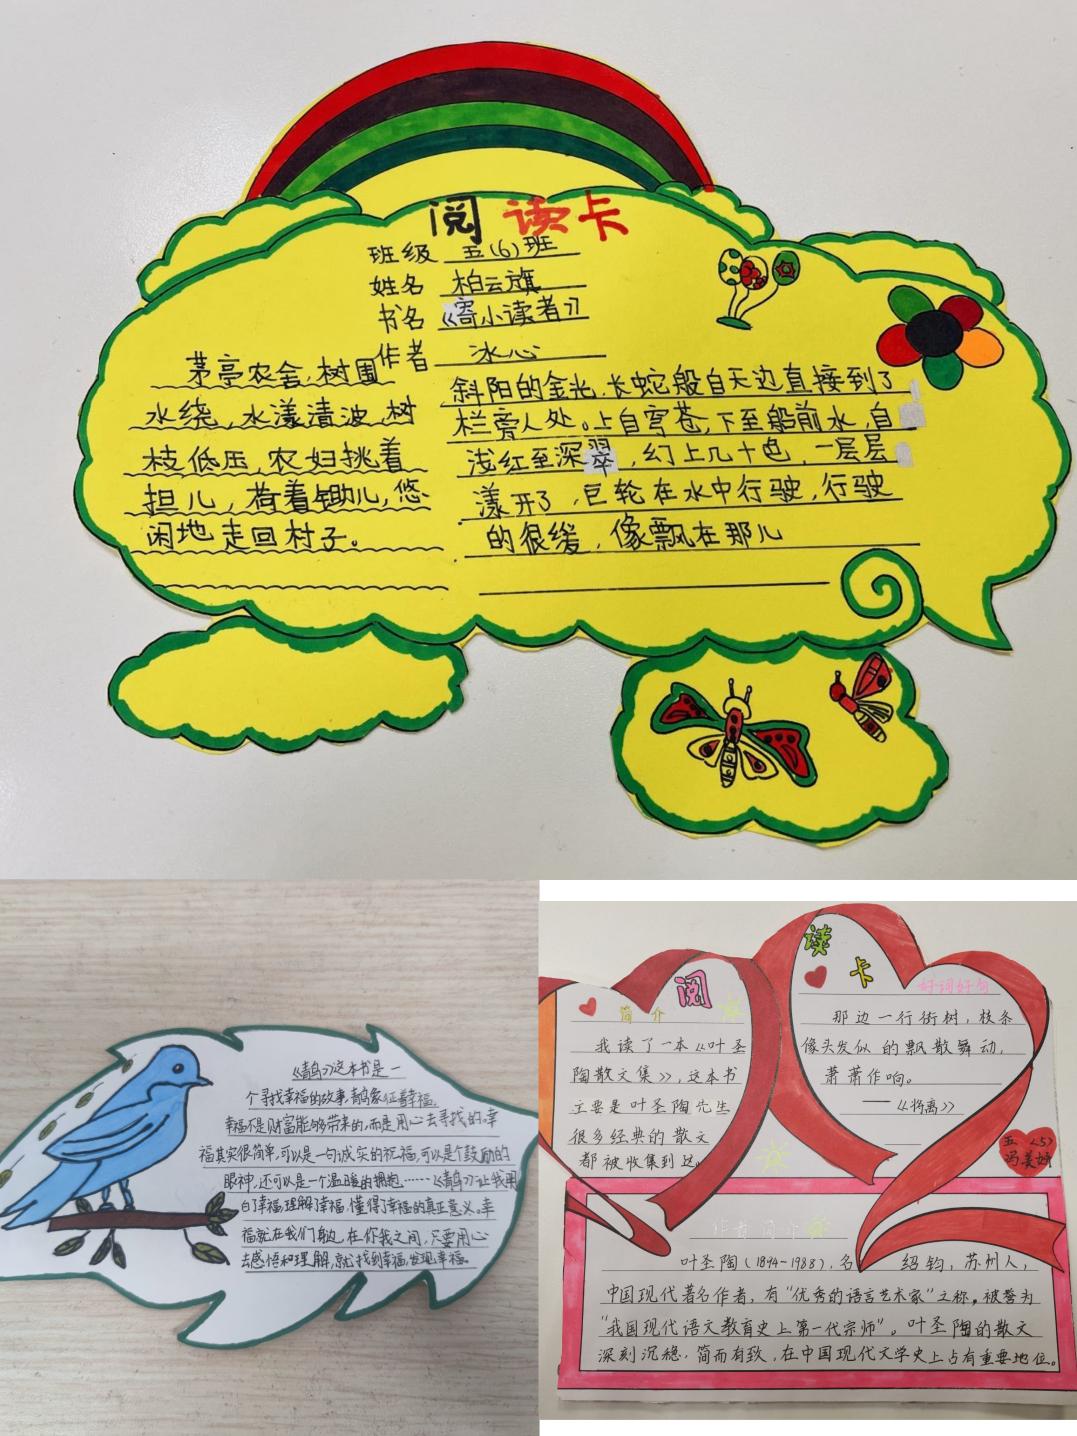 阅读卡
班级 五(6)班
姓名 柏云旗
书名 《寄小读者》
作者 冰心
茅亭农舍,树围
水绕,水漾清波,树
枝低压,农妇挑着
担儿,荷着锄儿,悠
闲地走回村子。
斜阳的金光,长蛇般自天边直接到了
栏旁人处。上自穹苍,下至船前水,自
浅红至深翠,幻上几十色,一层层
漾开了,巨轮在水中行驶,行驶
的很缓,像飘在那儿
《青鸟》这本书是一
个寻找幸福的故事,青鸟象征着幸福。
幸福不是财富能够带来的,而是用心去寻找的。幸
福其实很简单,可以是一句诚实的祝福,可以是个鼓励的
眼神,还可以是一个温暖的拥抱……《青鸟》让我明
白了幸福,理解了幸福,懂得了幸福的真正意义。幸
福就在我们身边,在你我之间,只要用心
去感悟和理解,就能找到幸福,发现幸福。
阅
读
卡
简介
我读了一本《叶圣
陶散文集》,这本书
主要是叶圣陶先生
很多经典的散文
都被收集到这。
好词好句
那边一行街树,枝条
像头发似的飘散舞动,
萧萧作响。
——《将离》
五〈5〉
冯美婷
作者简介
叶圣陶(1894-1988),名 绍钧,苏州人,
中国现代著名作者,有“优秀的语言艺术家”之称。被誉为
“我国现代语文教育史上第一代宗师”。叶圣陶的散文
深刻沉稳,简而有致,在中国现代文学史上占有重要地位。